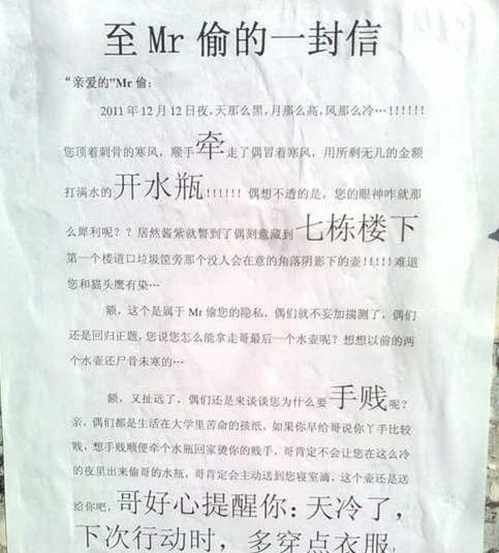 至 Mr 偷的一封信
“亲爱的”Mr 偷：
2011 年 12 月 12 日夜，天那么黑，月那么高，风那么冷…！！！！！！
您顶着刺骨的寒风，顺手牵走了偶冒着寒风，用所剩无几的金额
打满水的开水瓶！！！！！！ 偶想不透的是，您的眼神咋就那
么犀利呢？？居然酱紫就瞥到了偶刻意藏到七栋楼下
第一个楼道口垃圾筐旁那个没人会在意的角落阴影下的壶！！！！！难道
您和猫头鹰有染…
额，这个是属于 Mr 偷您的隐私，偶们就不妄加揣测了，偶们
还是回归正题，您说您怎么能拿走哥最后一个水壶呢？想想以前的两
个水壶还尸骨未寒的…
额，又扯远了，偶们还是来谈谈您为什么要手贱呢？
亲，偶们都是生活在大学里苦命的孩纸，如果你早给哥说你丫手比较
贱，想手贱顺便牵个水瓶回家烫你的贱手，哥肯定不会让您在这么冷
的夜里出来偷哥的水瓶，哥肯定会主动送到您寝室滴，这个壶还是送
给你吧，哥好心提醒你：天冷了，
下次行动时，多穿点衣服！